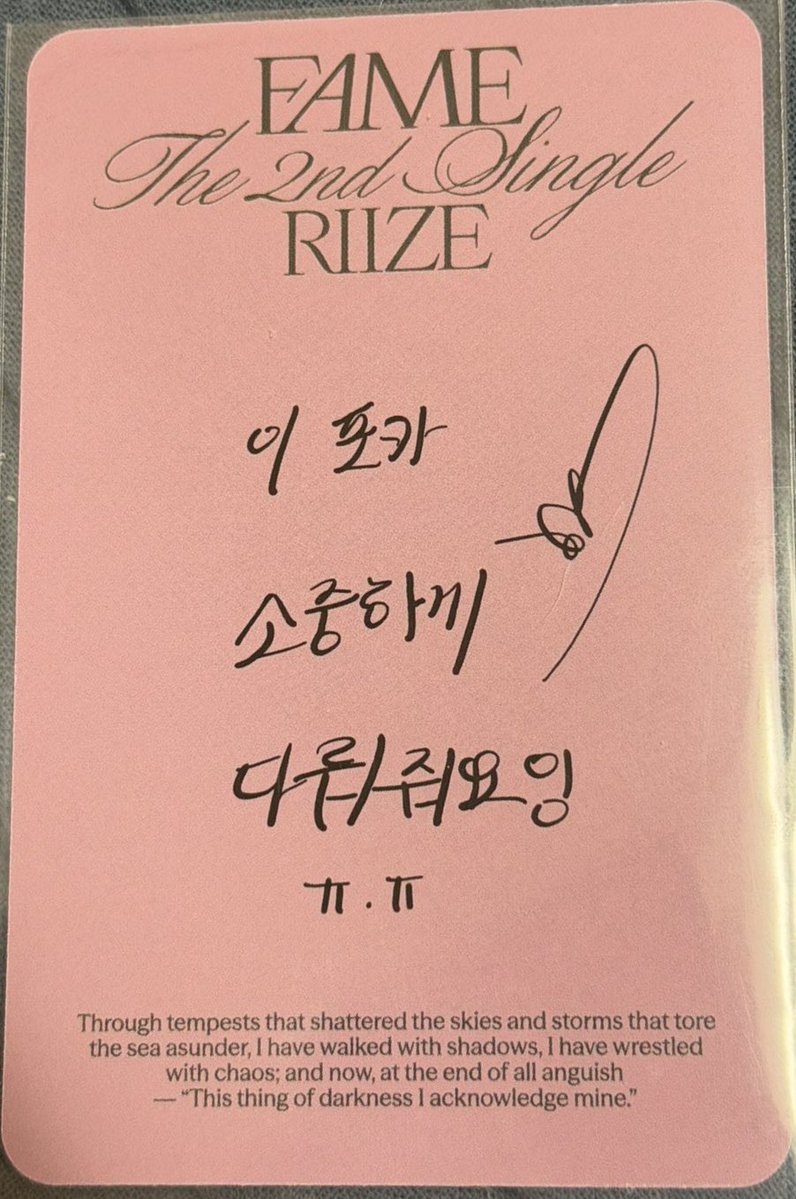 FAME
The 2nd Single
RIIZE
이 포카
소중하게
다뤄줘요잉
ㅠ.ㅠ
Through tempests that shattered the skies and storms that tore
the sea asunder, I have walked with shadows, I have wrestled
with chaos; and now, at the end of all anguish
— “This thing of darkness I acknowledge mine.”